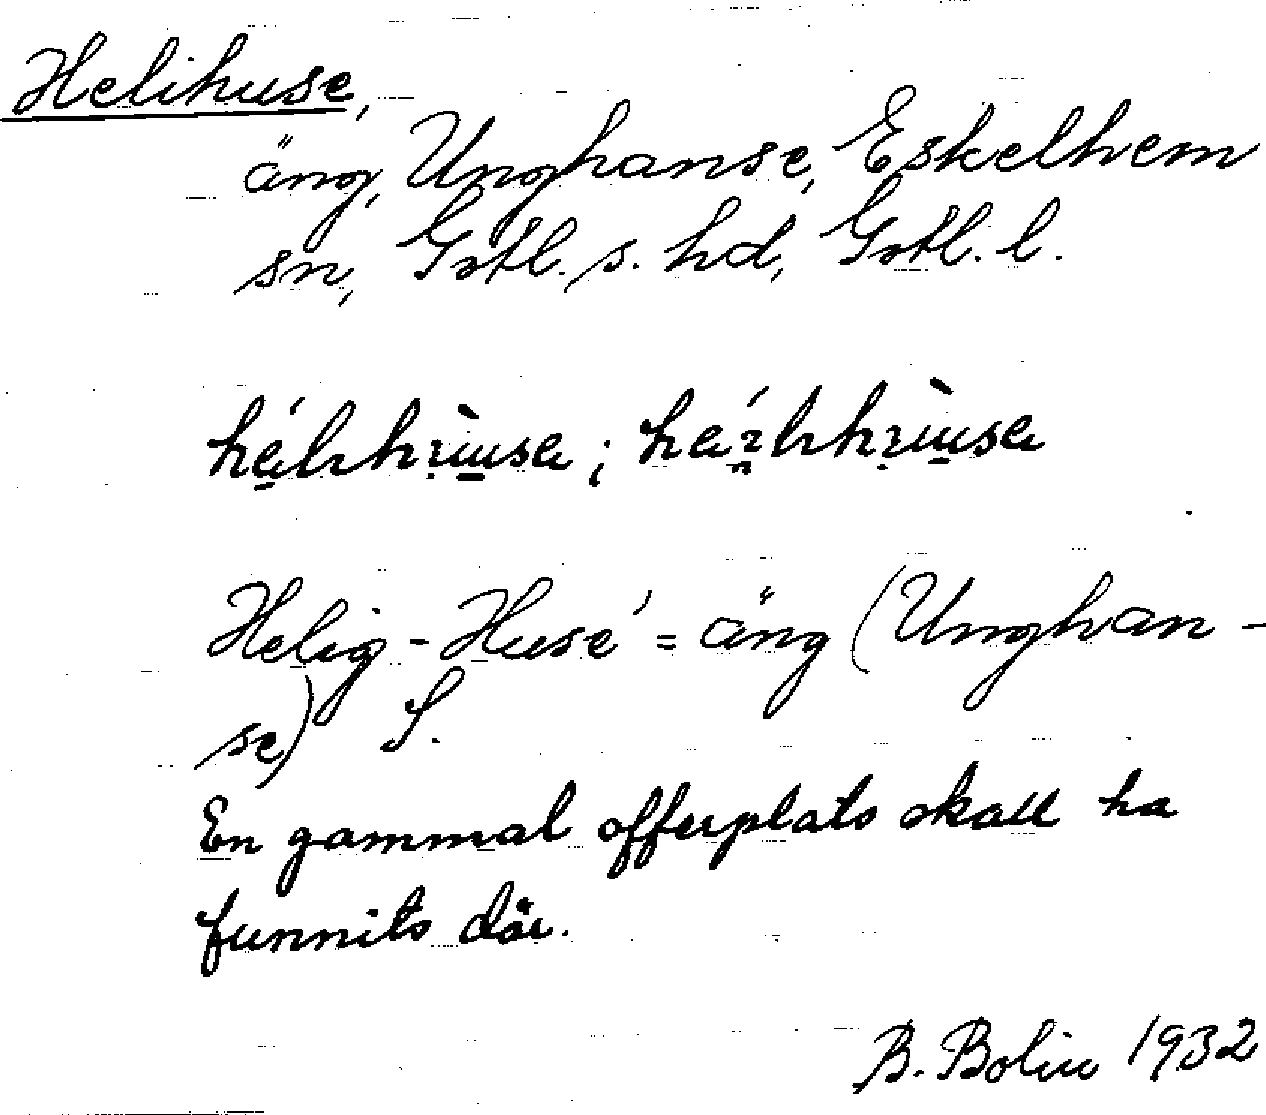 Helihuse,
äng, Unghanse, Eskelhem
sn, Gotl. s. hd, Gotl. l.
Helig-Huse' = äng (Unghan-
se) S.
En gammal offerplats skall ha
funnits där.
B. Bolin 1932